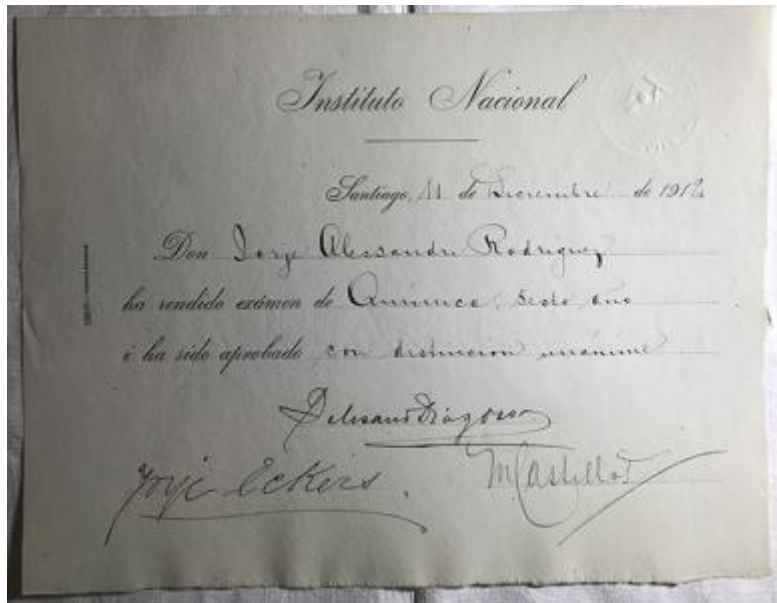 Instituto Nacional
Santiago, 11 de Diciembre de 1912
Don Jorge Alessandri Rodriguez
ha rendido exámen de Química, Sesto año
i ha sido aprobado con distincion unánime
Jorje Eckers.
M Castillo